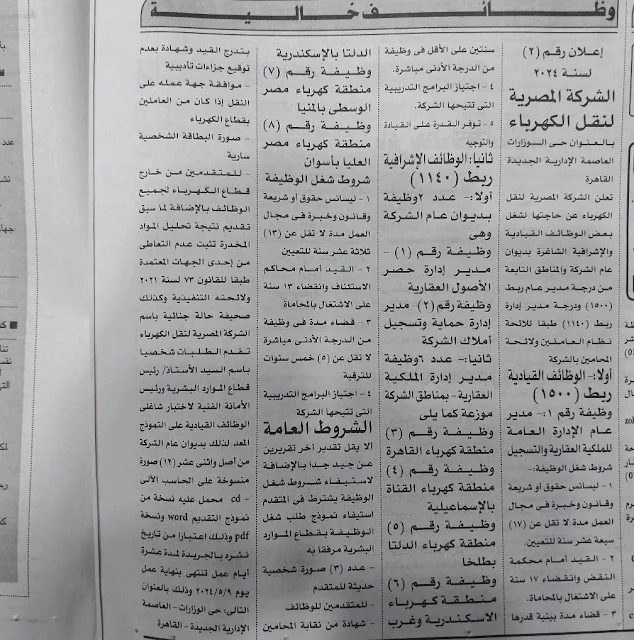 وظائف خالية
إعلان رقم (٢)
لسنة ٢٠٢٤
الشركة المصرية
لنقل الكهرباء
بالعنوان حى الوزارات
العاصمة الإدارية الجديدة
القاهرة
تعلن الشركة المصرية لنقل
الكهرباء عن حاجتها لشغل
بعض الوظائف القيادية
والإشرافية الشاغرة بديوان
عام الشركة والمناطق التابعة
من درجة مدير عام ربط
(١٥٠٠) ودرجة مدير إدارة
ربط (١١٤٠) طبقا للائحة
نظام العاملين ولائحة
المحامين بالشركة
أولا:- الوظائف القيادية
ربط (١٥٠٠)
وظيفة رقم ١:- مدير
عام الإدارة العامة
للملكية العقارية والتسجيل
شروط شغل الوظيفة:-
١ - ليسانس حقوق أو شريعة
وقانون وخبرة فى مجال
العمل مدة لا تقل عن (١٧)
سبعة عشر سنة للتعيين.
٢ - القيد أمام محكمة
النقض وانقضاء ١٧ سنة
على الاشتغال بالمحاماة.
٣ - قضاء مدة بينية قدرها
سنتين على الأقل فى وظيفة
من الدرجة الأدنى مباشرة.
٤ - اجتياز البرامج التدريبية
التى تتيحها الشركة.
٥ - توفر القدرة على القيادة
والتوجيه
ثانيا: الوظائف الإشرافية
ربط (١١٤٠)
أولا:- عدد ٢وظيفة
بديوان عام الشركة
وهى
وظيفة رقم (١) -
مدير إدارة حصر
الأصول العقارية
وظيفة رقم (٢)- مدير
إدارة حماية وتسجيل
أملاك الشركة
ثانيا:- عدد ٦وظيفة
مدير إدارة الملكية
العقارية - بمناطق الشركة
موزعة كما يلى
وظيفة رقم (٣)
منطقة كهرباء القاهرة
وظيفة رقم (٤)
منطقة كهرباء القناة
بالإسماعيلية
وظيفة رقم (٥)
منطقة كهرباء الدلتا
بطلخا
وظيفة رقم (٦)
منطقة كهرباء
الاسكندرية وغرب
الدلتا بالإسكندرية
وظيفة رقم (٧)
منطقة كهرباء مصر
الوسطى بالمنيا
وظيفة رقم (٨)
منطقة كهرباء مصر
العليا بأسوان
شروط شغل الوظيفة
١ - ليسانس حقوق أو شريعة
وقانون وخبرة فى مجال
العمل مدة لا تقل عن (١٣)
ثلاثة عشر سنة للتعيين
٢ - القيد أمام محاكم
الاستئناف وانقضاء ١٣ سنة
على الاشتغال بالمحاماة
٣ - قضاء مدة فى وظيفة
من الدرجة الأدنى مباشرة
لا تقل عن (٥) خمس سنوات
للترقية
٤ - اجتياز البرامج التدريبية
التى تتيحها الشركة
الشروط العامة
ألا يقل تقدير آخر تقريرين
عن جيد جدا بالإضافة
لاستيفاء شروط شغل
الوظيفة يشترط فى المتقدم
استيفاء نموذج طلب شغل
الوظيفة بقطاع الموارد
البشرية مرفقا به
- عدد (٣) صورة شخصية
حديثة للمتقدم
- للمتقدمين للوظائف
- شهادة من نقابة المحامين
بتدرج القيد وشهادة بعدم
توقيع جزاءات تأديبية
- موافقة جهة عمله على
النقل إذا كان من العاملين
بقطاع الكهرباء
- صورة البطاقة الشخصية
سارية
- للمتقدمين من خارج
قطاع الكهرباء لجميع
الوظائف بالإضافة لما سبق
تقديم نتيجة تحليل المواد
المخدرة تثبت عدم التعاطى
من إحدى الجهات المعتمدة
طبقا للقانون ٧٣ لسنة ٢٠٢١
ولائحته التنفيذية وكذلك
صحيفة حالة جنائية باسم
الشركة المصرية لنقل الكهرباء
تقدم الطلبات شخصيا
باسم السيد الأستاذ/ رئيس
قطاع الموارد البشرية ورئيس
الأمانة الفنية لاختيار شاغلى
الوظائف القيادية على النموذج
المعد لذلك بديوان عام الشركة
من أصل واثنى عشر (١٢) صورة
منسوخة على الحاسب الآلى
+ cd محمل عليه نسخة من
نموذج التقديم word ونسخة
pdf وذلك اعتبارا من تاريخ
نشره بالجريدة لمدة عشرة
أيام عمل تنتهى بنهاية عمل
يوم ٢٠٢٤/٥/٩ وذلك بالعنوان
التالى: حى الوزارات - العاصمة
الإدارية الجديدة - القاهرة